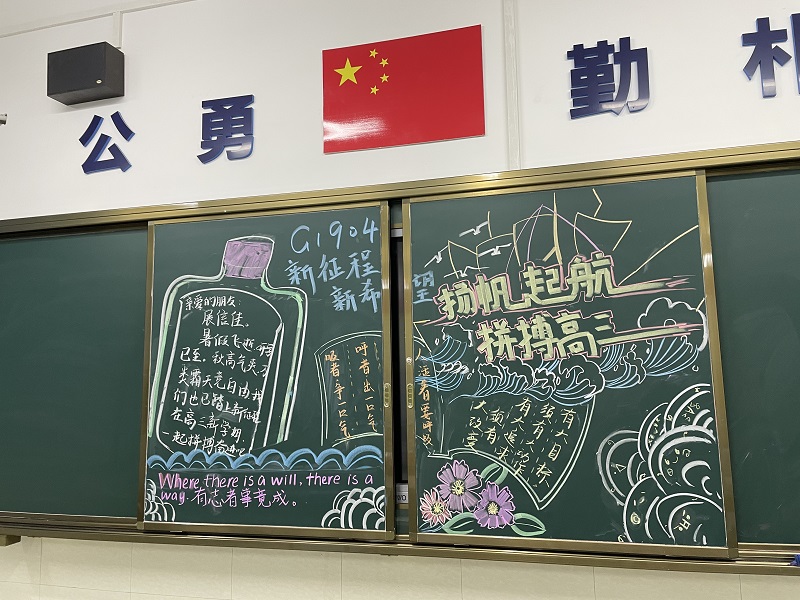 公 勇 勤 朴
G1904
新征程
新希望
亲爱的朋友:
展信佳。
暑假飞逝,
已至,秋高气爽,
类霸天竞自由,我
们也已踏上新征程
在高三新学期
一起拼搏奋进吧
呼者出一口气
吸者争一口气
活着要呼吸
扬帆起航
拼搏高三
有大目标
须有大
有大
须有
大改变
Where there is a will, there is a
way. 有志者事竟成。